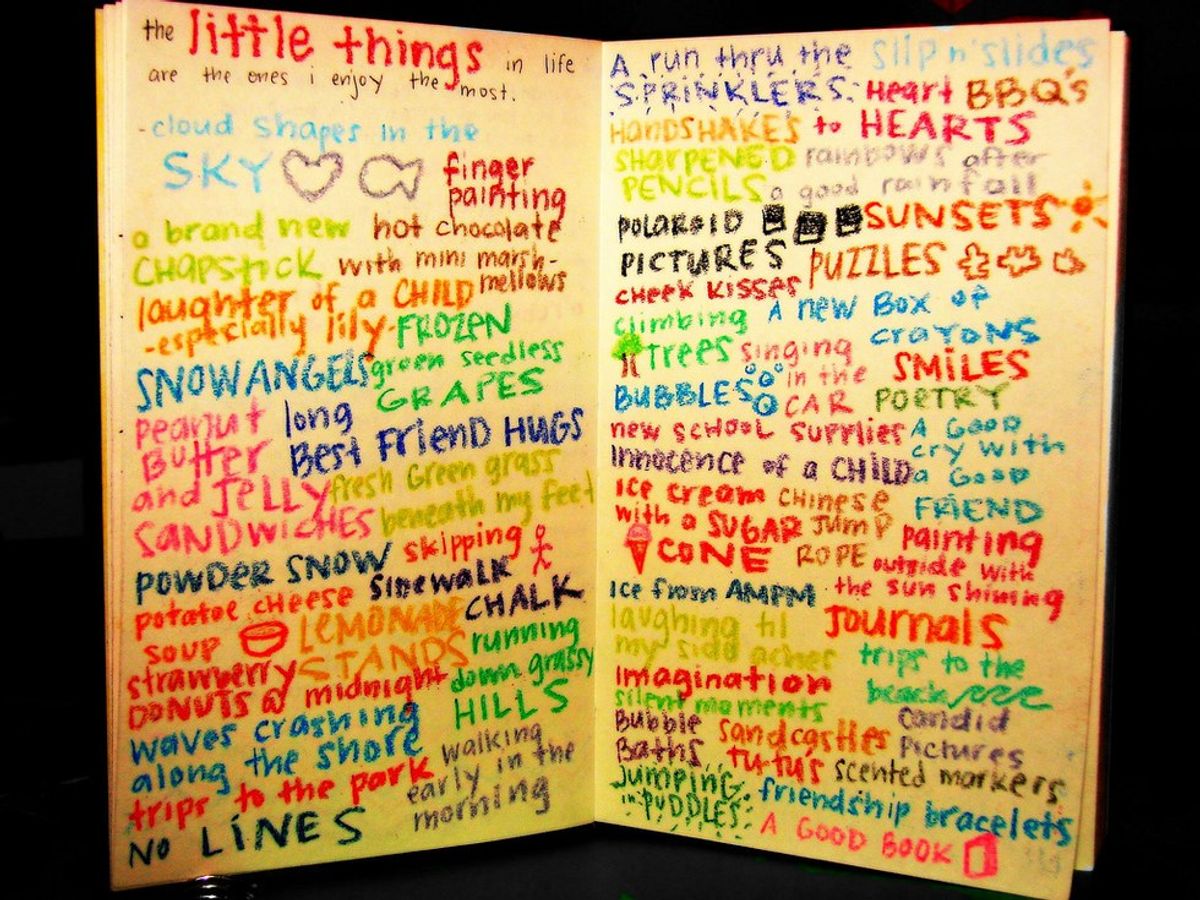 the little things in life
are the ones i enjoy the most.
-cloud shapes in the
SKY
finger
painting
a brand new
CHAPSTICK
hot chocolate
with mini marsh-
mellows
laughter of a CHILD
-especially lily-
FROZEN
green seedless
GRAPES
SNOWANGELS
peanut
Butter
and JELLY
SANDWICHES
long
Best FRIEND HUGS
fresh Green grass
beneath my feet
POWDER SNOW
skipping
potatoe cheese
soup
SIDEWALK
CHALK
LEMONADE
STANDS
running
down grassy
HILLS
strawberry
DONUTS @ midnight
waves crashing
along the shore
walking
early in the
morning
trips to the park
NO LINES
A run thru the
SPRINKLERS
slip n' slides
Heart
to HEARTS
BBQ's
HANDSHAKES
SHARPENED
PENCILS
rainbows after
a good rainfall
POLAROID
PICTURES
SUNSETS
PUZZLES
cheek kisses
climbing
trees
A new Box of
crayons
singing
in the
CAR
SMILES
BUBBLES
POETRY
new SCHOOL supplies
A GOOD
cry with
a GOOD
FRIEND
Innocence of a CHILD
ice cream
with a SUGAR
CONE
CHINESE
JUMP
ROPE
painting
outside with
the sun shining
Ice from AMPM
laughing til
my side aches
Journals
trips to the
beach
imagination
silent moments
candid
Pictures
Bubble
Baths
sandcastles
tutu's
scented markers
Jumping
in PUDDLES
friendship bracelets
A GOOD BOOK